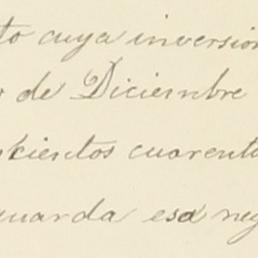 to cuya inversión
de Diciembre
cientos cuarenta
guarda esa neg